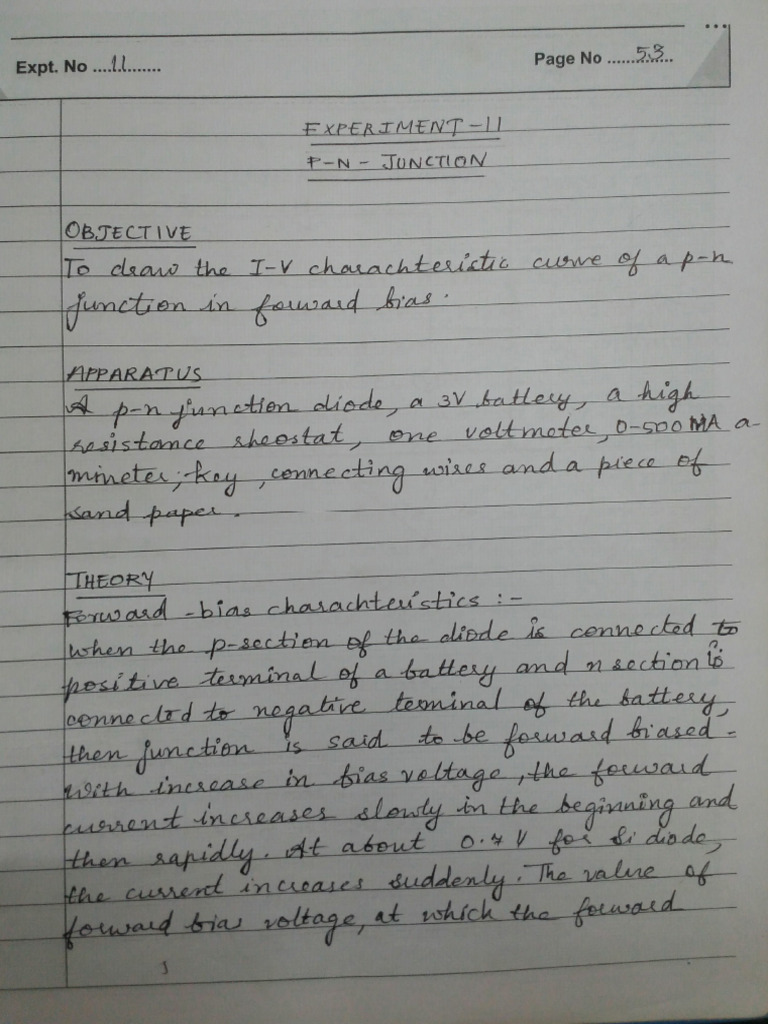 Expt. No ....11.......... Page No ......53........
EXPERIMENT-11
P-N- JUNCTION
OBJECTIVE
To draw the I-V charachteristic curve of a p-n
junction in forward bias.
APPARATUS
A p-n junction diode, a 3V battery, a high
resistance rheostat, one voltmeter, 0-500 MA a-
mmeter, key, connecting wires and a piece of
sand paper.
THEORY
Forward -bias charachteristics :-
when the p-section of the diode is connected to
positive terminal of a battery and n section is
connected to negative terminal of the battery,
then junction is said to be forward biased.
With increase in bias voltage, the forward
current increases slowly in the beginning and
then rapidly. At about 0.7 V for Si diode,
the current increases suddenly. The value of
forward bias voltage, at which the forward